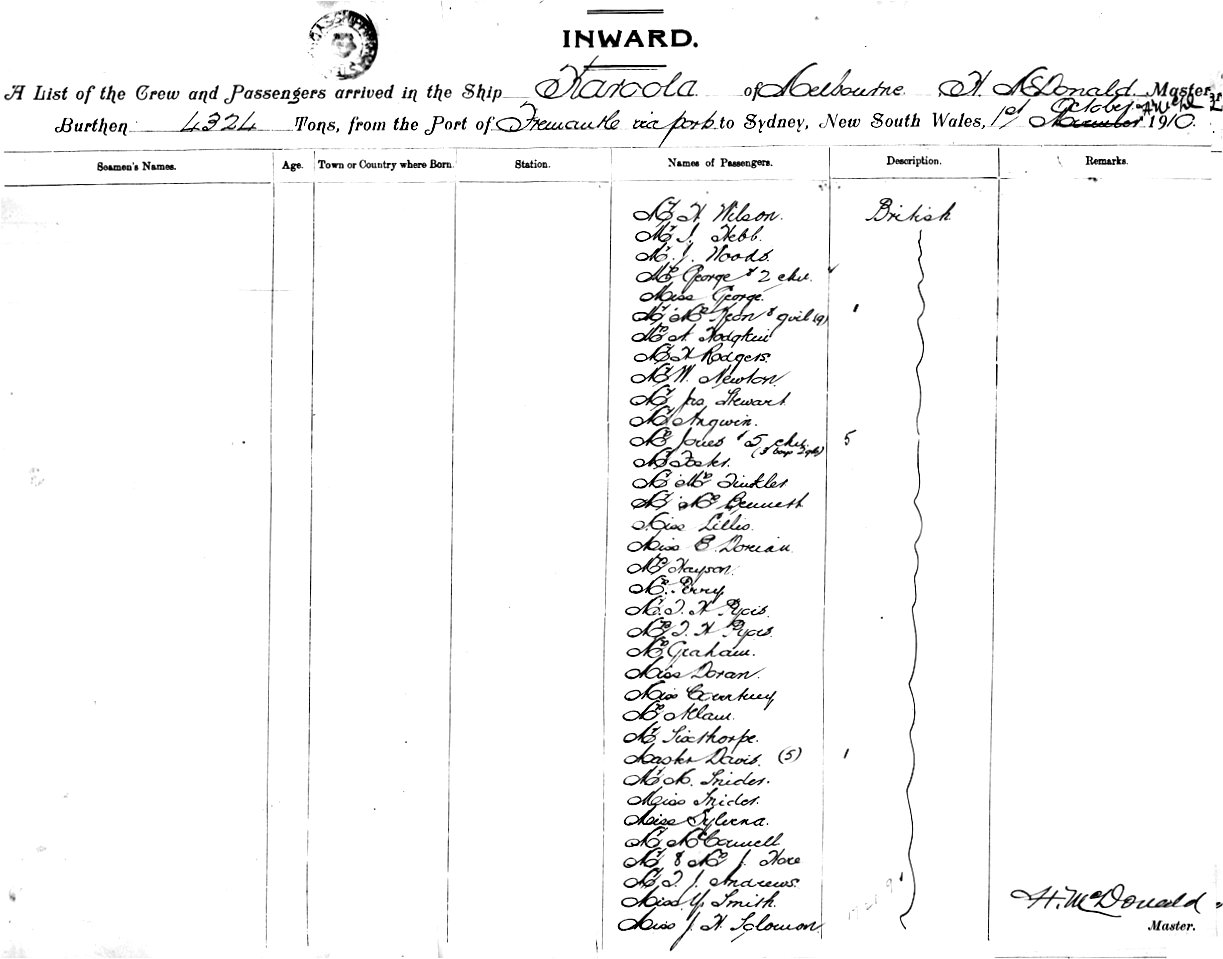 INWARD.
A List of the Crew and Passengers arrived in the Ship Karoola of Melbourne H. McDonald Master,
Burthen 4324 Tons, from the Port of Fremantle via ports to Sydney, New South Wales, 1st October 1910.
Seamen's Names. Age. Town or Country where Born. Station. Names of Passengers. Description. Remarks.
Mr H. Wilson. British
Mr J. Hebb.
Mr J. Woods.
Mrs George & 2 chn.
Miss George.
Mr & Mrs
Mrs A. Hodgkin
Mr H Rodgers.
Mr W. Newton.
Mr Jas Stewart
Mr Angwin.
Mrs Jones & 5 chn. 5
Mr
Mr & Mrs Tinkler
Mr & Mrs Bennett
Miss Lillis.
Miss E. Dorian.
Mrs Hayson.
Mrs Perry
Mr T. H.
Mrs T. H.
Mrs Graham.
Miss Doran.
Miss Courtney
Mrs
Mr Sixthorpe.
Master Davis. (5) 1
Mr M. Snider.
Miss Snider.
Miss
Mr McConnell
Mr & Mrs J. Hore
Mr T. J. Andrews.
Miss Y. Smith.
Miss J. H. Solomon
H. McDonald
Master.